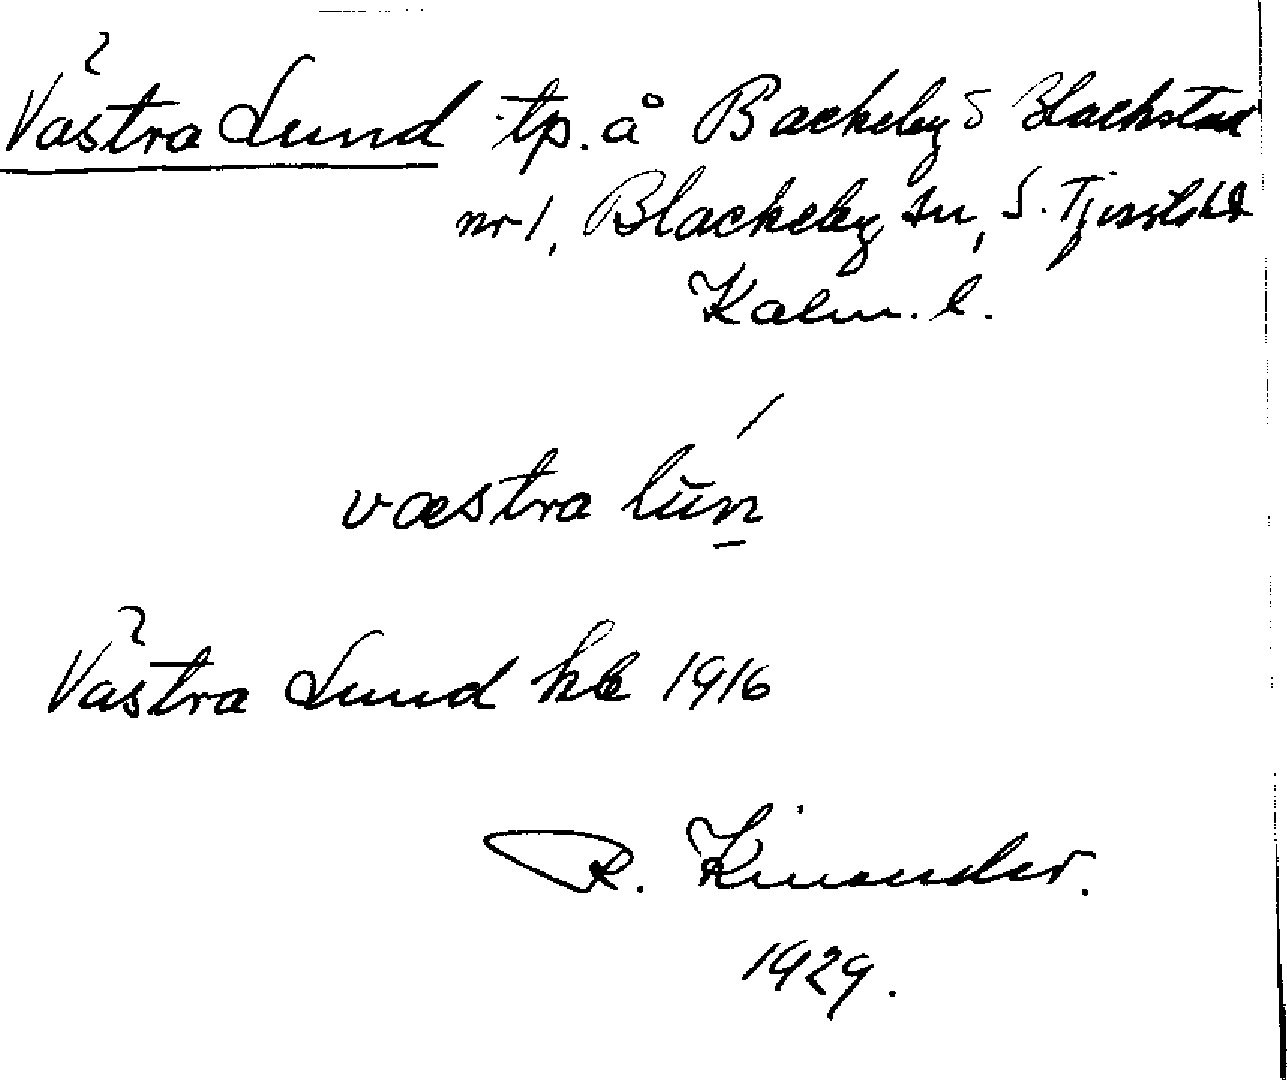 Västra Lund tp. å Backeby o Blackstad
nr 1, Blackeby sn, S. Tjusts hd
Kalm. l.
væstra lūn
Västra Lund kb 1916
R. Kinander.
1929.